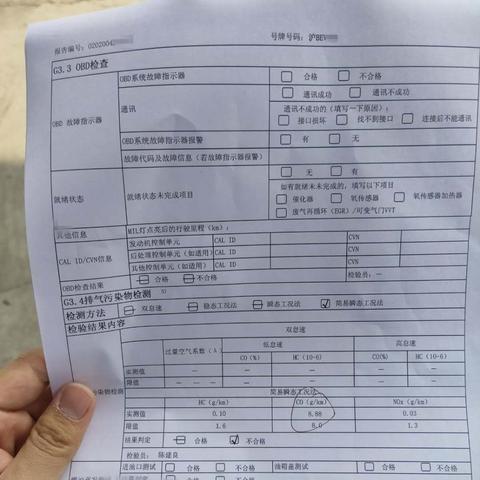 报告编号:0202004 号牌号码:沪BEV
G3.3 OBD检查
OBD 故障指示器
OBD系统故障指示器 □ 合格 □ 不合格
通讯 □ 通讯成功 □ 通讯不成功
通讯不成功的(填写一下原因):
□ 接口损坏 □ 找不到接口 □ 连接后不能通讯
OBD系统故障指示器报警 □ 有 □ 无
故障代码及故障信息(若故障指示器报警)
就绪状态 就绪状态未完成项目 □ 无 □ 有
如有就绪未未完成的,填写以下项目
□ 催化器 □ 氧传感器 □ 氧传感器加热器
□ 废气再循环(EGR)/可变气门VVT
其他信息 MIL灯点亮后的行驶里程(km):
CAL ID/CVN信息
发动机控制单元 CAL ID CVN
后处理控制单元(如适用) CAL ID CVN
其他控制单元(如适用) CAL ID CVN
OBD检查结果 合格 不合格 检验员:—
G3.4排气污染物检测
检测方法 双怠速 稳态工况法 瞬态工况法 ☑ 简易瞬态工况法
检验结果内容
双怠速
过量空气系数(λ) 低怠速 高怠速
CO(%) HC(10-6) CO(%) HC(10-6)
实测值 — — — — —
限值 — — — — —
简易瞬态工况法
污染物检测
HC(g/km) CO(g/km) NOx(g/km)
实测值 0.10 8.88 0.03
限值 1.6 8.0 1.3
结果判定 合格 ☑ 不合格
检验员: 陈建良
进油口测试 □ 合格 □ 不合格 油箱盖测试 □ 合格 □ 不合格
□ 合格 □ 不合格